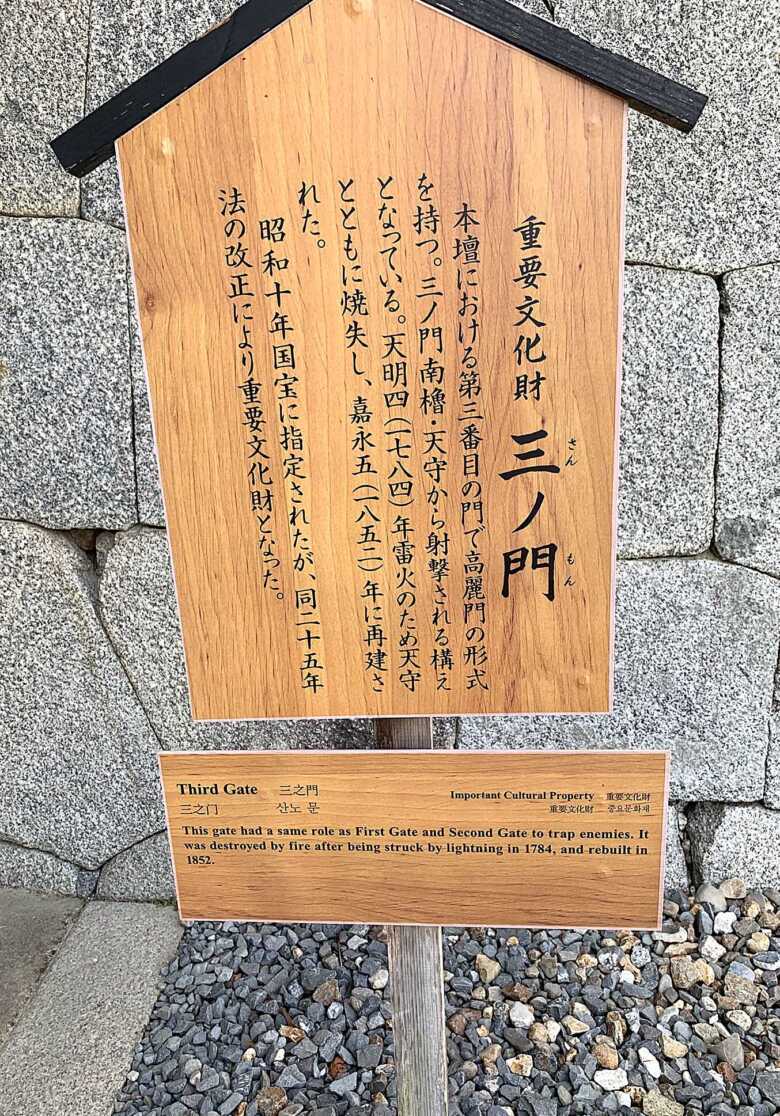 重要文化財 三ノ門
さん もん
本壇における第三番目の門で高麗門の形式
を持つ。三ノ門南櫓・天守から射撃される構え
となっている。天明四(一七八四)年雷火のため天守
とともに焼失し、嘉永五(一八五二)年に再建さ
れた。
昭和十年国宝に指定されたが、同二十五年
法の改正により重要文化財となった。
Third Gate 三之門
三之门 산노 문
Important Cultural Property 重要文化财
重要文化財 중요문화재
This gate had a same role as First Gate and Second Gate to trap enemies. It
was destroyed by fire after being struck by lightning in 1784, and rebuilt in
1852.